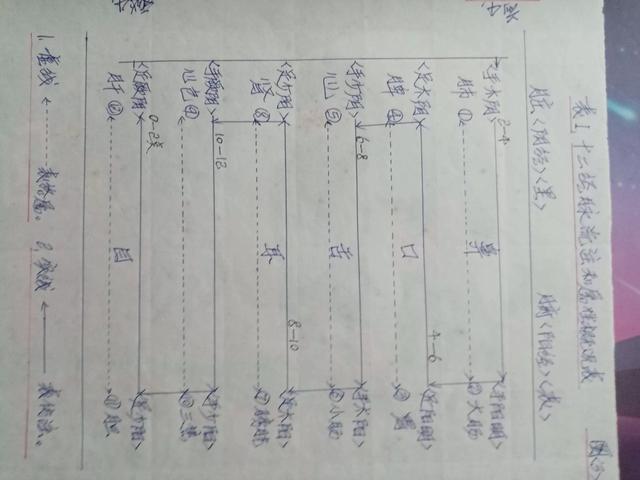 表1 十二经脉流注和属性
脏<阴经><里>
腑<阳经><表>
<手太阴> 2-4 <手阳明>
肺① 鼻 ② 大肠
<足太阴 4-6 足阳明>
脾④ 口 ③ 胃
<手少阴 6-8 手太阳>
心⑤ 舌 ⑥ 小肠
<足少阴 8-10 足太阳>
肾⑧ 耳 ⑦ 膀胱
<手厥阴 10-12 手少阳>
⑩ 三焦
<足厥阴 0-2 足少阳>
肝⑫ 目 ⑪ 胆
1. 虚线 表络属。 2. 实线